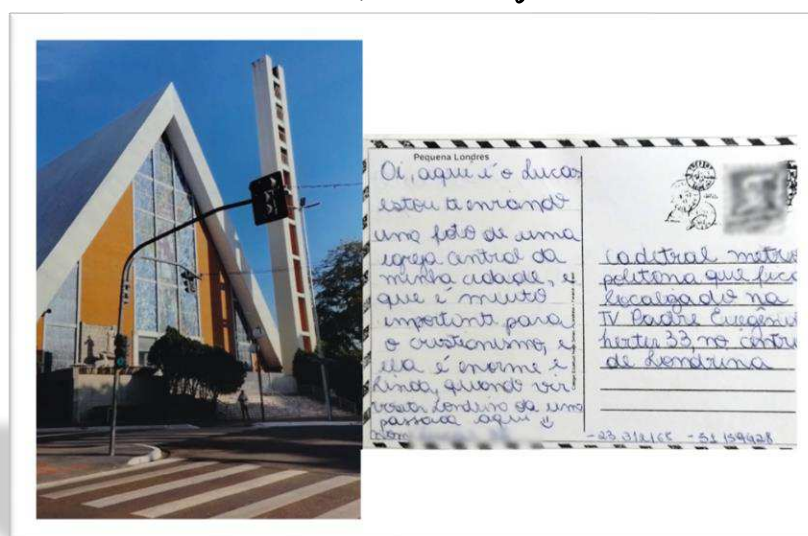 Pequena Londres
Oi, aqui é o Lucas
estou ti enviando
uma foto de uma
igreja central da
minha cidade, e
que é muito
important para
o cristianismo, e
ela é enorme i
linda, quando vir
Londrina da uma
passada aqui
cadetral metro
politana que fica
localgado na
TV Padre
33, no centro
de Londrina